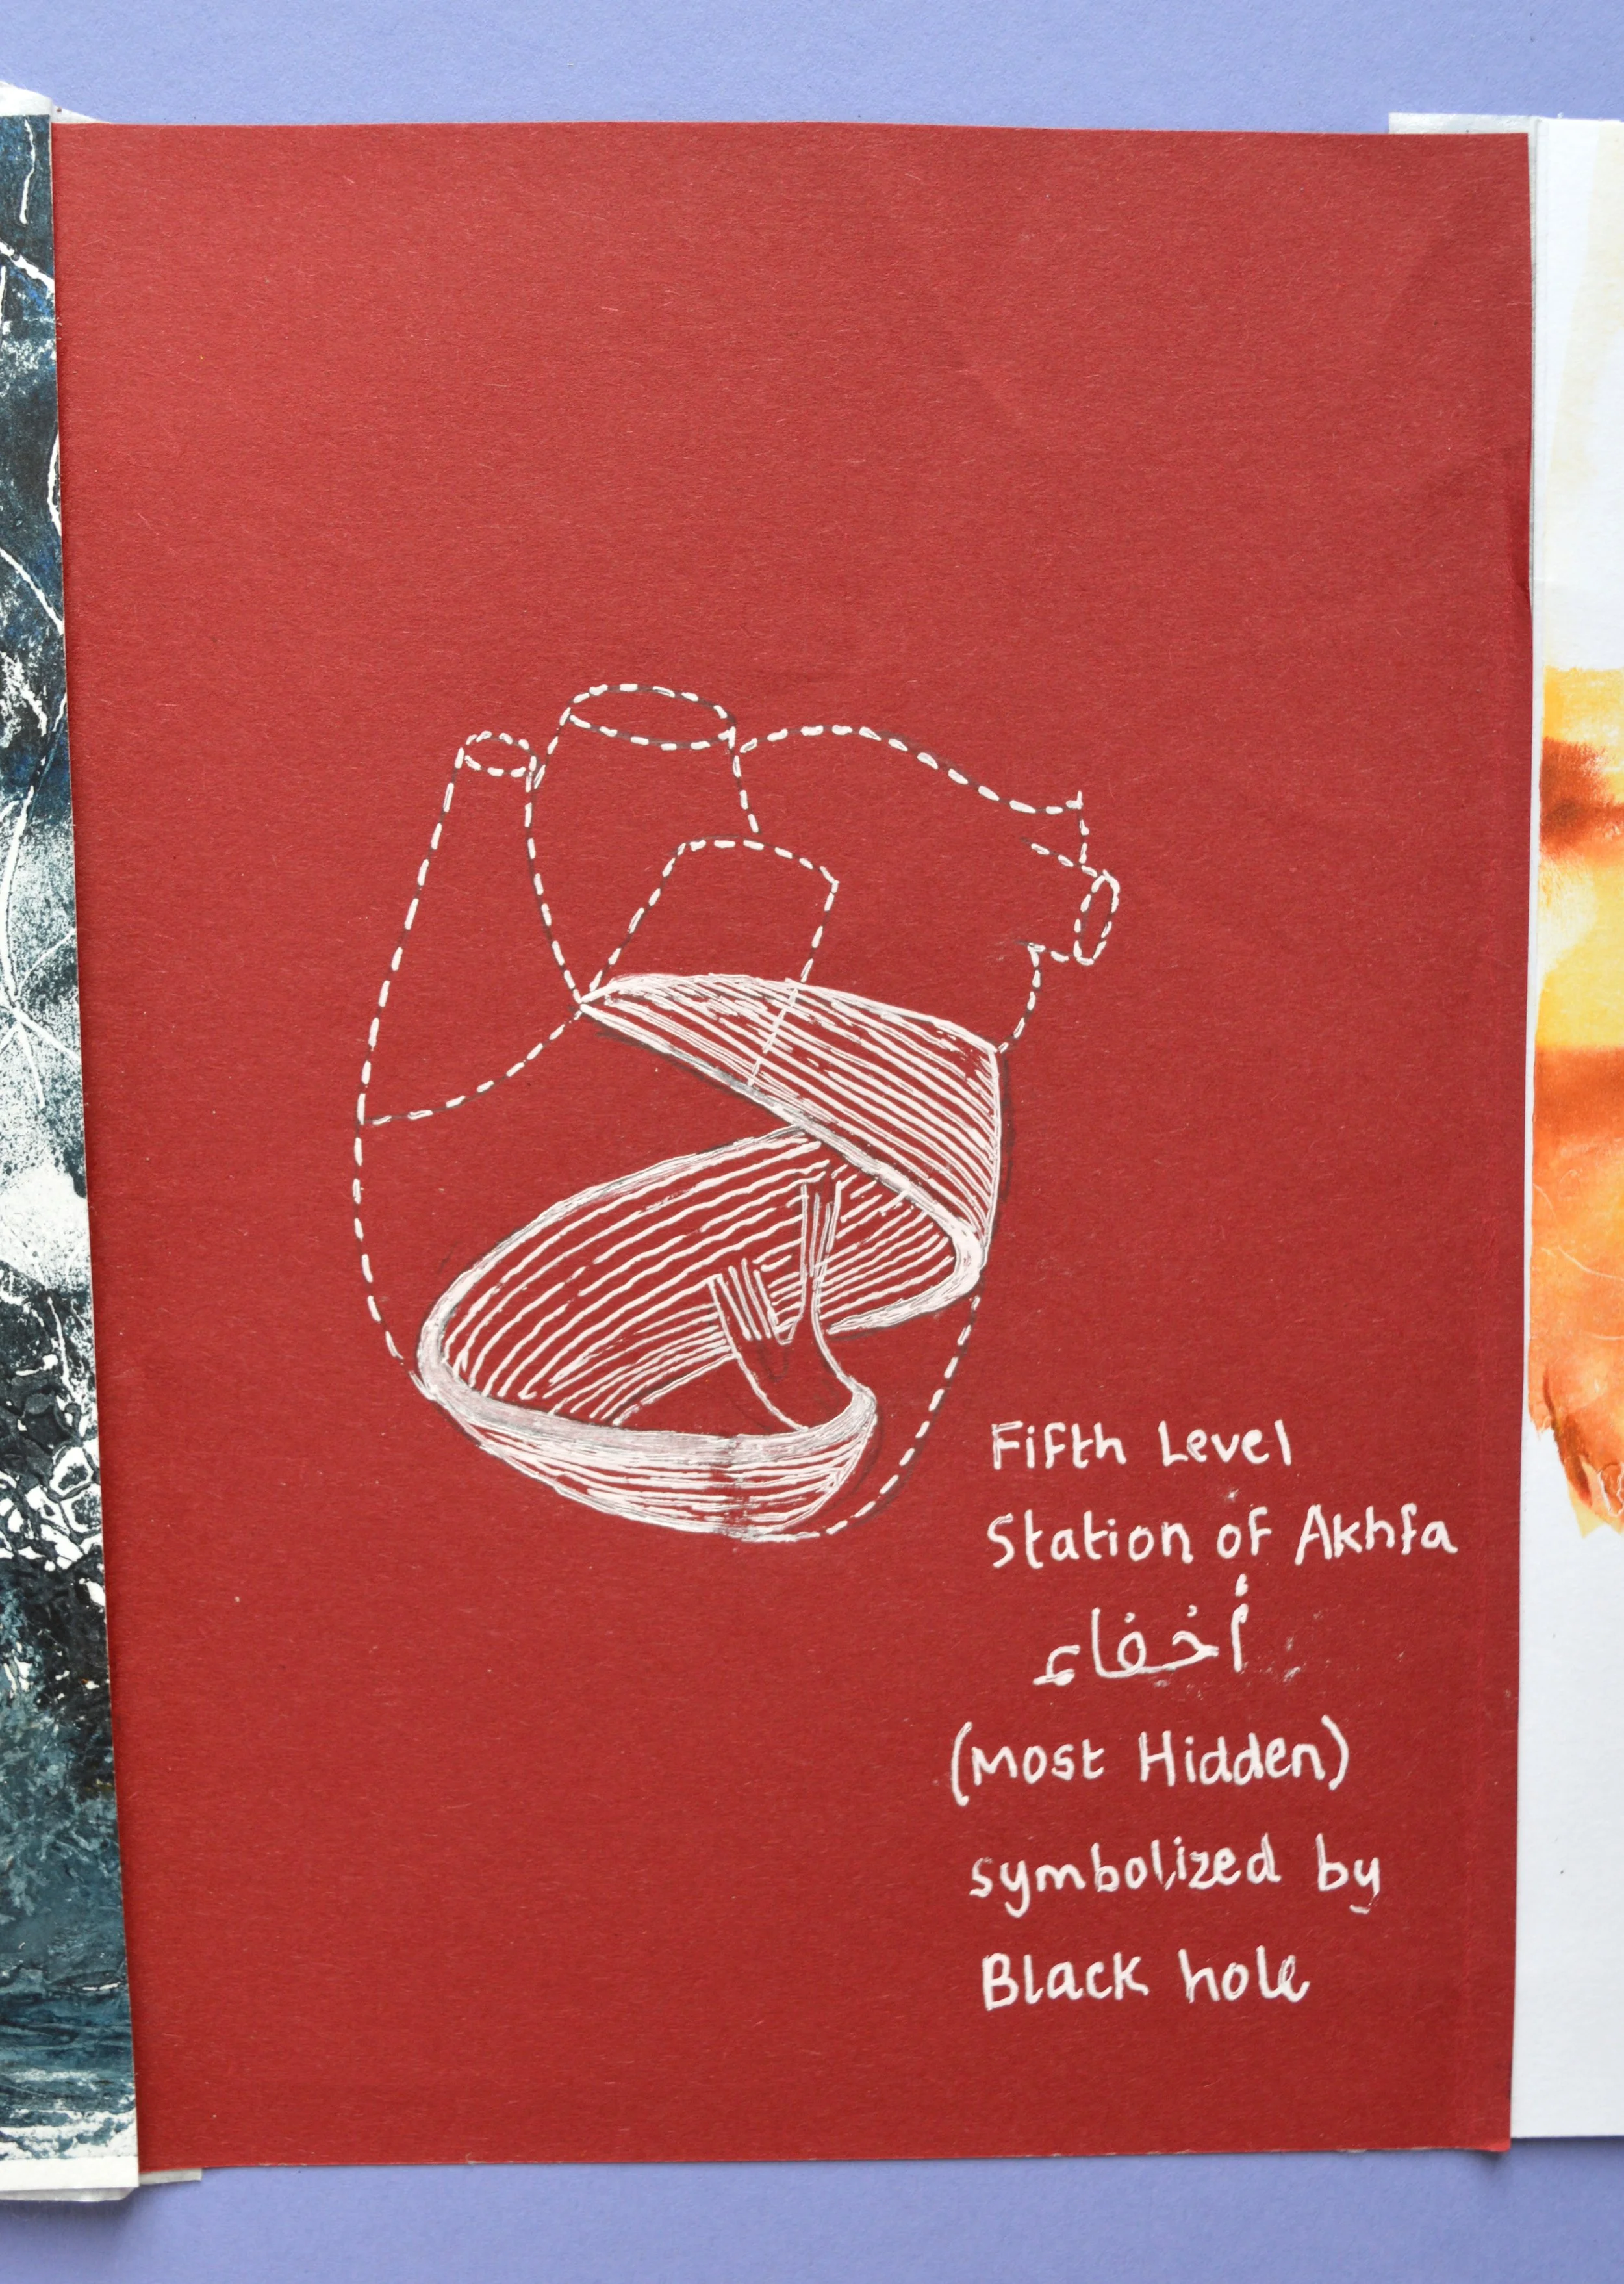 Fifth Level
Station of Akhfa
أخفاء
(Most Hidden)
symbolized by
Black hole